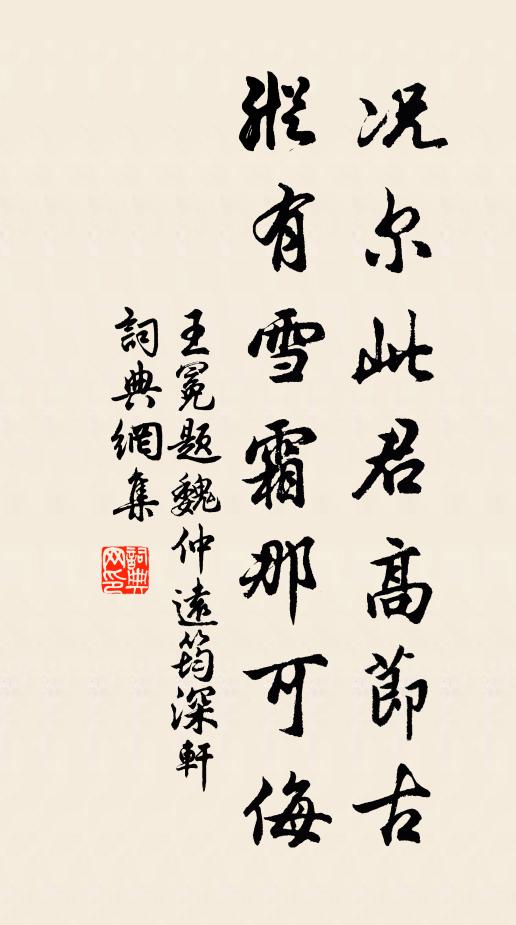 况尔此君高節古
縱有雪霜那可侮
王冕题魏仲遠筠深軒
詞典網集
詞典
网印